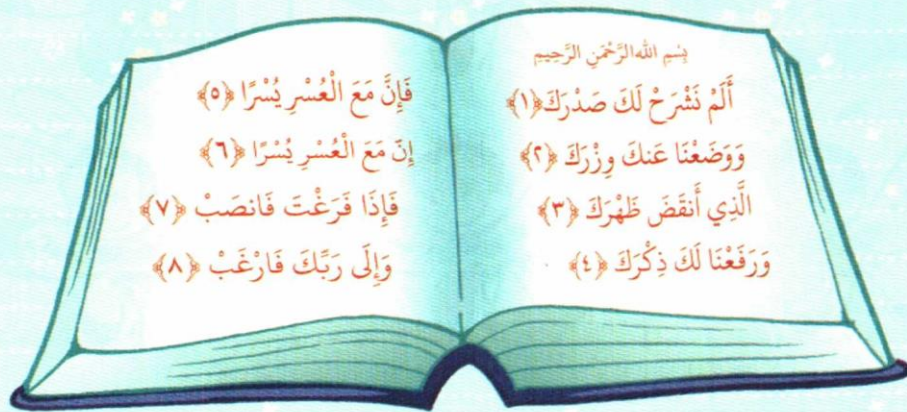 بِسْمِ اللهِ الرَّحْمَنِ الرَّحِيمِ
أَلَمْ نَشْرَحْ لَكَ صَدْرَكَ ﴿١﴾
وَوَضَعْنَا عَنكَ وِزْرَكَ ﴿٢﴾
الَّذِي أَنقَضَ ظَهْرَكَ ﴿٣﴾
وَرَفَعْنَا لَكَ ذِكْرَكَ ﴿٤﴾
فَإِنَّ مَعَ الْعُسْرِ يُسْرًا ﴿٥﴾
إِنَّ مَعَ الْعُسْرِ يُسْرًا ﴿٦﴾
فَإِذَا فَرَغْتَ فَانصَبْ ﴿٧﴾
وَإِلَى رَبِّكَ فَارْغَبْ ﴿٨﴾